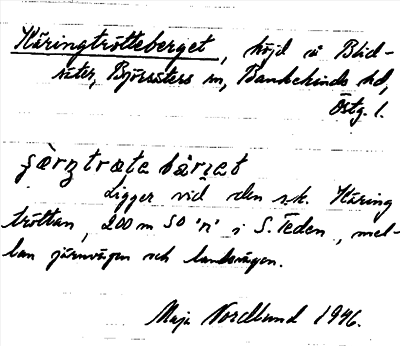 Käringtrötteberget, höjd å Blid-
säter, Björsäters sn, Bankekinds hd,
Östg. l.
çær̀ztrøtebær̀jet
Ligger vid den s.k. Käring
tröttan, 200 m SO "n" i S. Teden, mel-
lan järnvägen och landsvägen.
Maja Nordlund 1946.